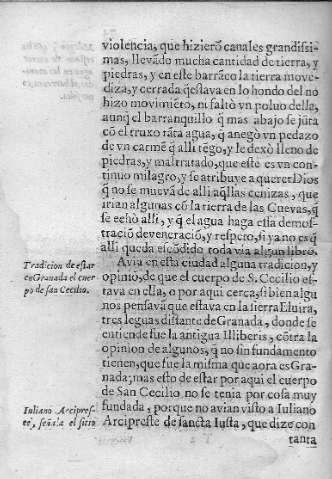 violencia, que hizierõ canales grandissi-
mas, lleuãdo mucha cantidad de tierra, y
piedras, y en este barrãco la tierra moue-
diza, y cerrada q̃ estaua en lo hondo del no
hizo mouimiẽto, ni faltò vn poluo della,
aunq̃ el barranquillo q̃ mas abajo se jũta
cõ el truxo tãta agua, q̃ anegò vn pedazo
de vn carmẽ q̃ alli tẽgo, y le dexò lleno de
piedras, y maltratado, que este es vn con-
tinuo milagro, y se atribuye a querer Dios
q̃ no se mueuã de alli aq̃llas cenizas, que
irian algunas cõ la tierra de las Cueuas, q̃
se echò alli, y q̃ el agua haga essa demos-
tració de veneració, y respeto, si ya no es q̃
alli queda escõdido toda via algun libro.
Auia en esta ciudad alguna tradicion, y
opiniõ, de que el cuerpo de S. Cecilio es-
taua en ella, o por aqui cerca, si bien algu-
nos pensauã que estaua en la tierra Eluira,
tres leguas distante de Granada, donde se
entiende fue la antigua Illiberis, cõtra la
opinion de algunos, q̃ no sin fundamento
tienen, que fue la misma que aora es Gra-
nada; mas esto de estar por aqui el cuerpo
de San Cecilio no se tenia por cosa muy
fundada, porque no auian visto a Iuliano
Arcipreste de sancta Iusta, que dize con
tanta
Tradicion de estar
en Granada el cuer-
po de san Cecilio.
Iuliano Arcipres-
te, señala el sitio